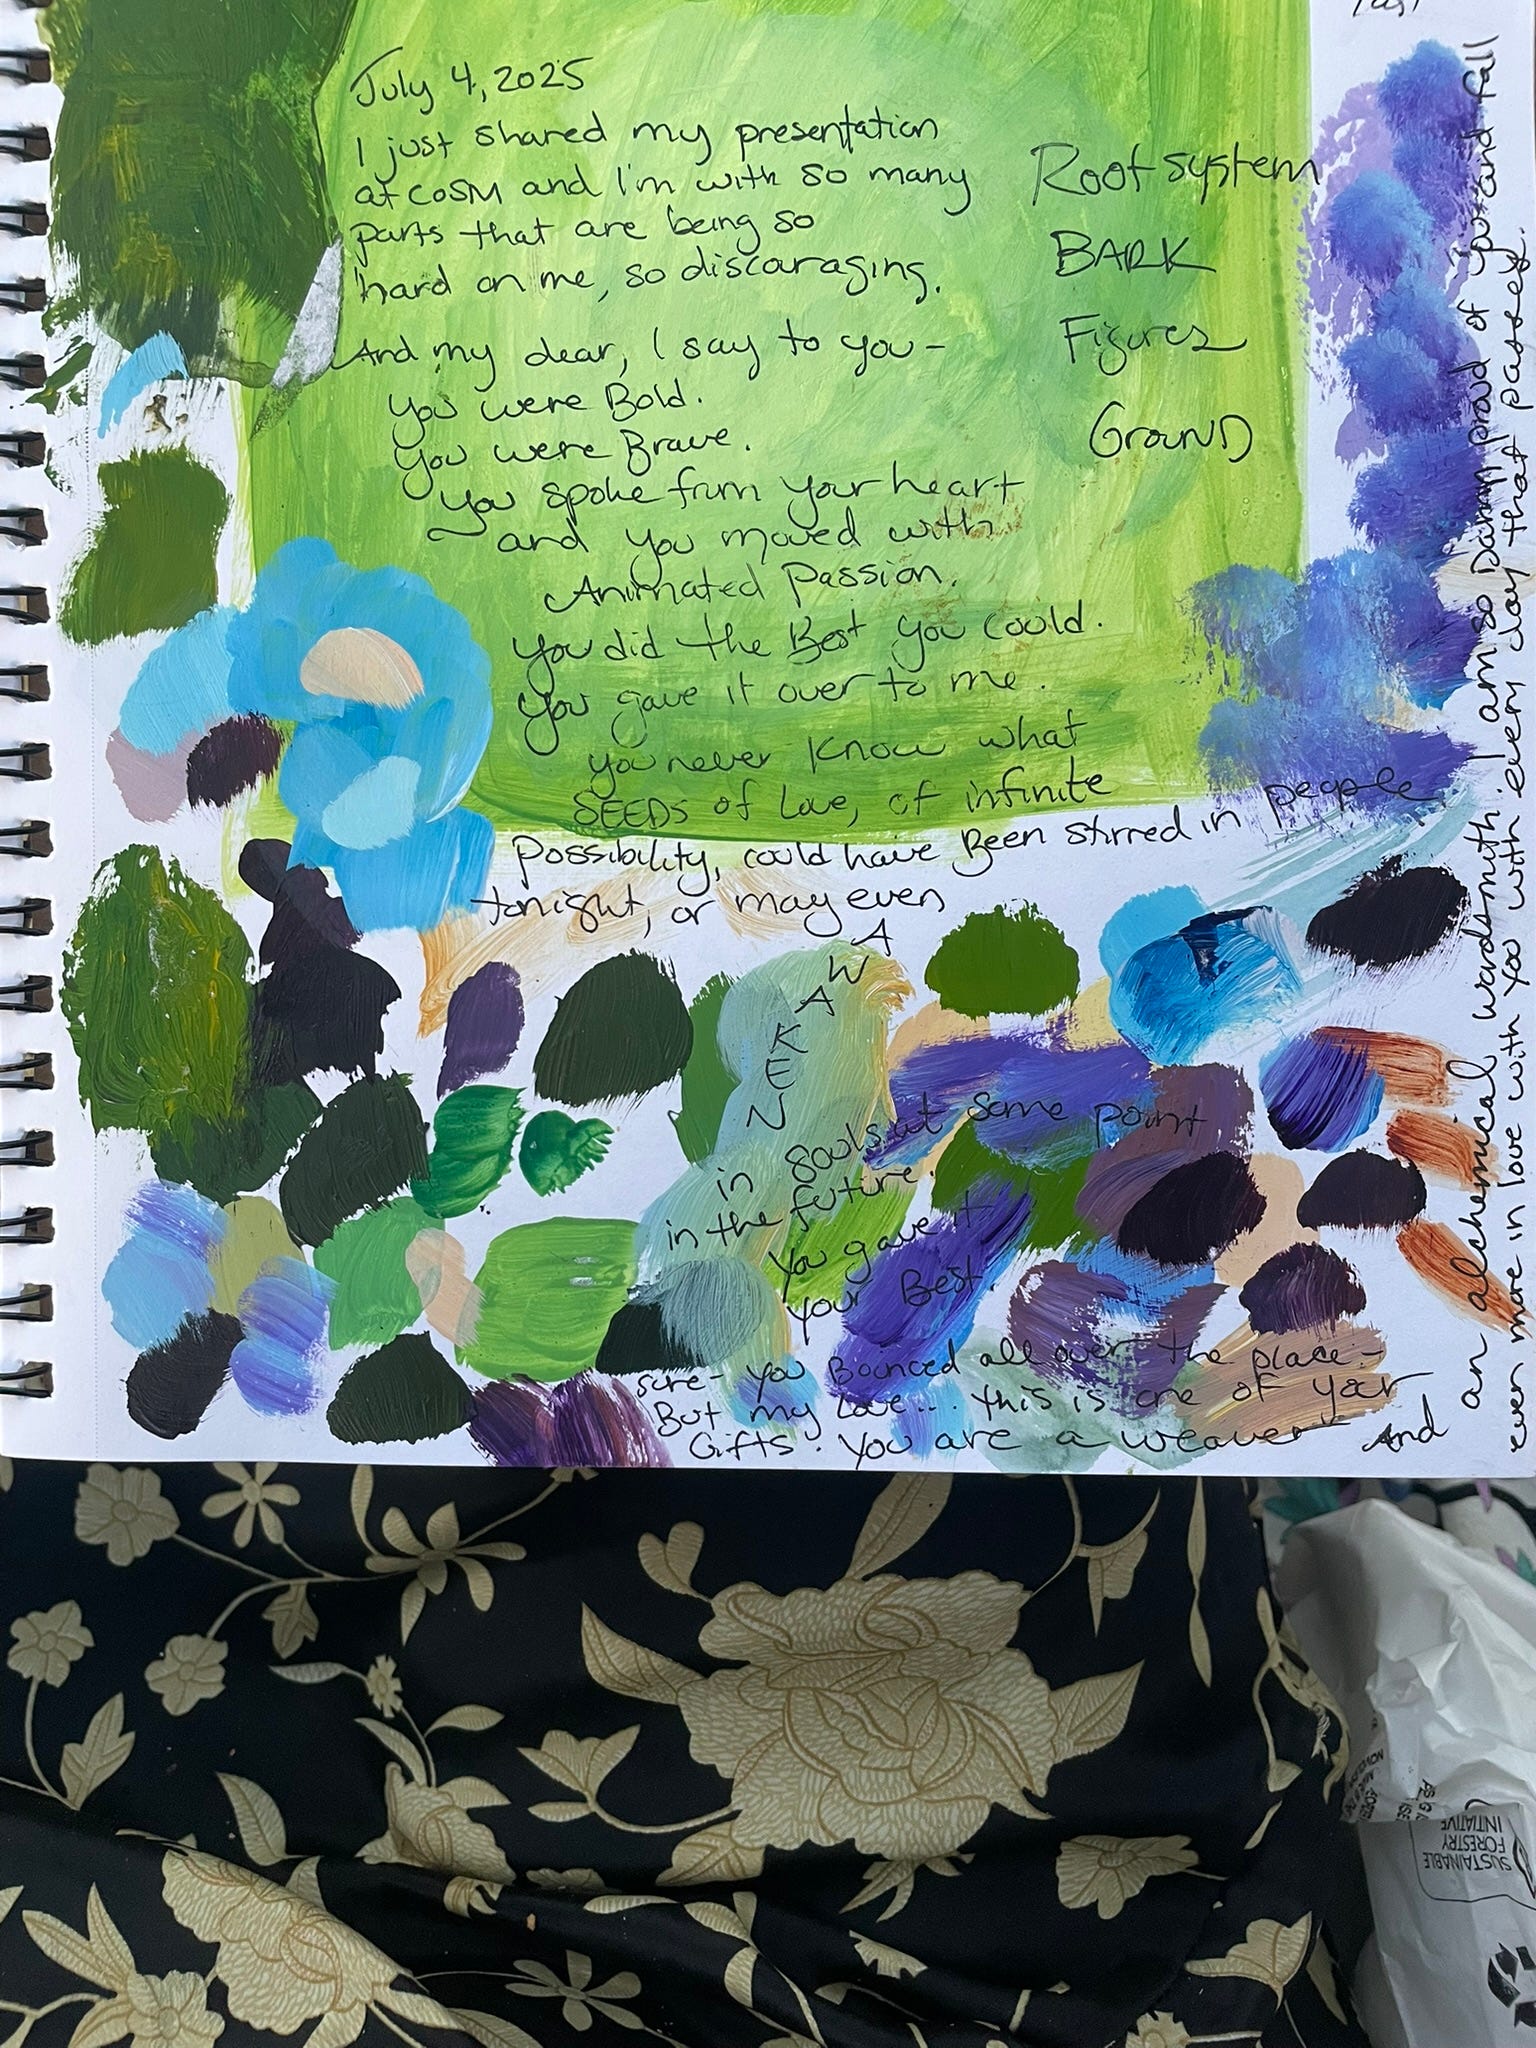 July 4, 2025
I just shared my presentation
at CoSM and I'm with so many
parts that are being so
hard on me, so discouraging.
And my dear, I say to you -
you were Bold.
You were Brave.
You spoke from your heart
and you moved with
Animated Passion.
You did the Best you could.
You gave it over to me.
you never know what
SEEDS of Love, of infinite
Possibility, could have Been stirred in people
tonight, or may even
AWAKEN
in Souls at some point
in the future.
You gave it
your Best.
sure - you Bounced all over the place -
But my Love... this is one of your
Gifts. You are a weaver and
an alchemical wordsmith. I am so Damn proud of you and fall
even more in love with you with every day that passes.
Root system
BARK
Figures
Ground
SUSTAINABLE
FORESTRY
INITIATIVE